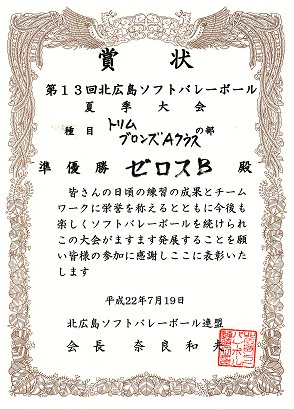 賞状
第13回北広島ソフトバレーボール
夏季大会
種目 トリム
ブロンズAクラス の部
準優勝 ゼロスB 殿
皆さんの日頃の練習の成果とチーム
ワークに栄誉を称えるとともに今後も
楽しくソフトバレーボールを続けられ
この大会がますます発展することを願
い皆様の参加に感謝しここに表彰いた
します
平成22年7月19日
北広島ソフトバレーボール連盟
会長 奈良和夫